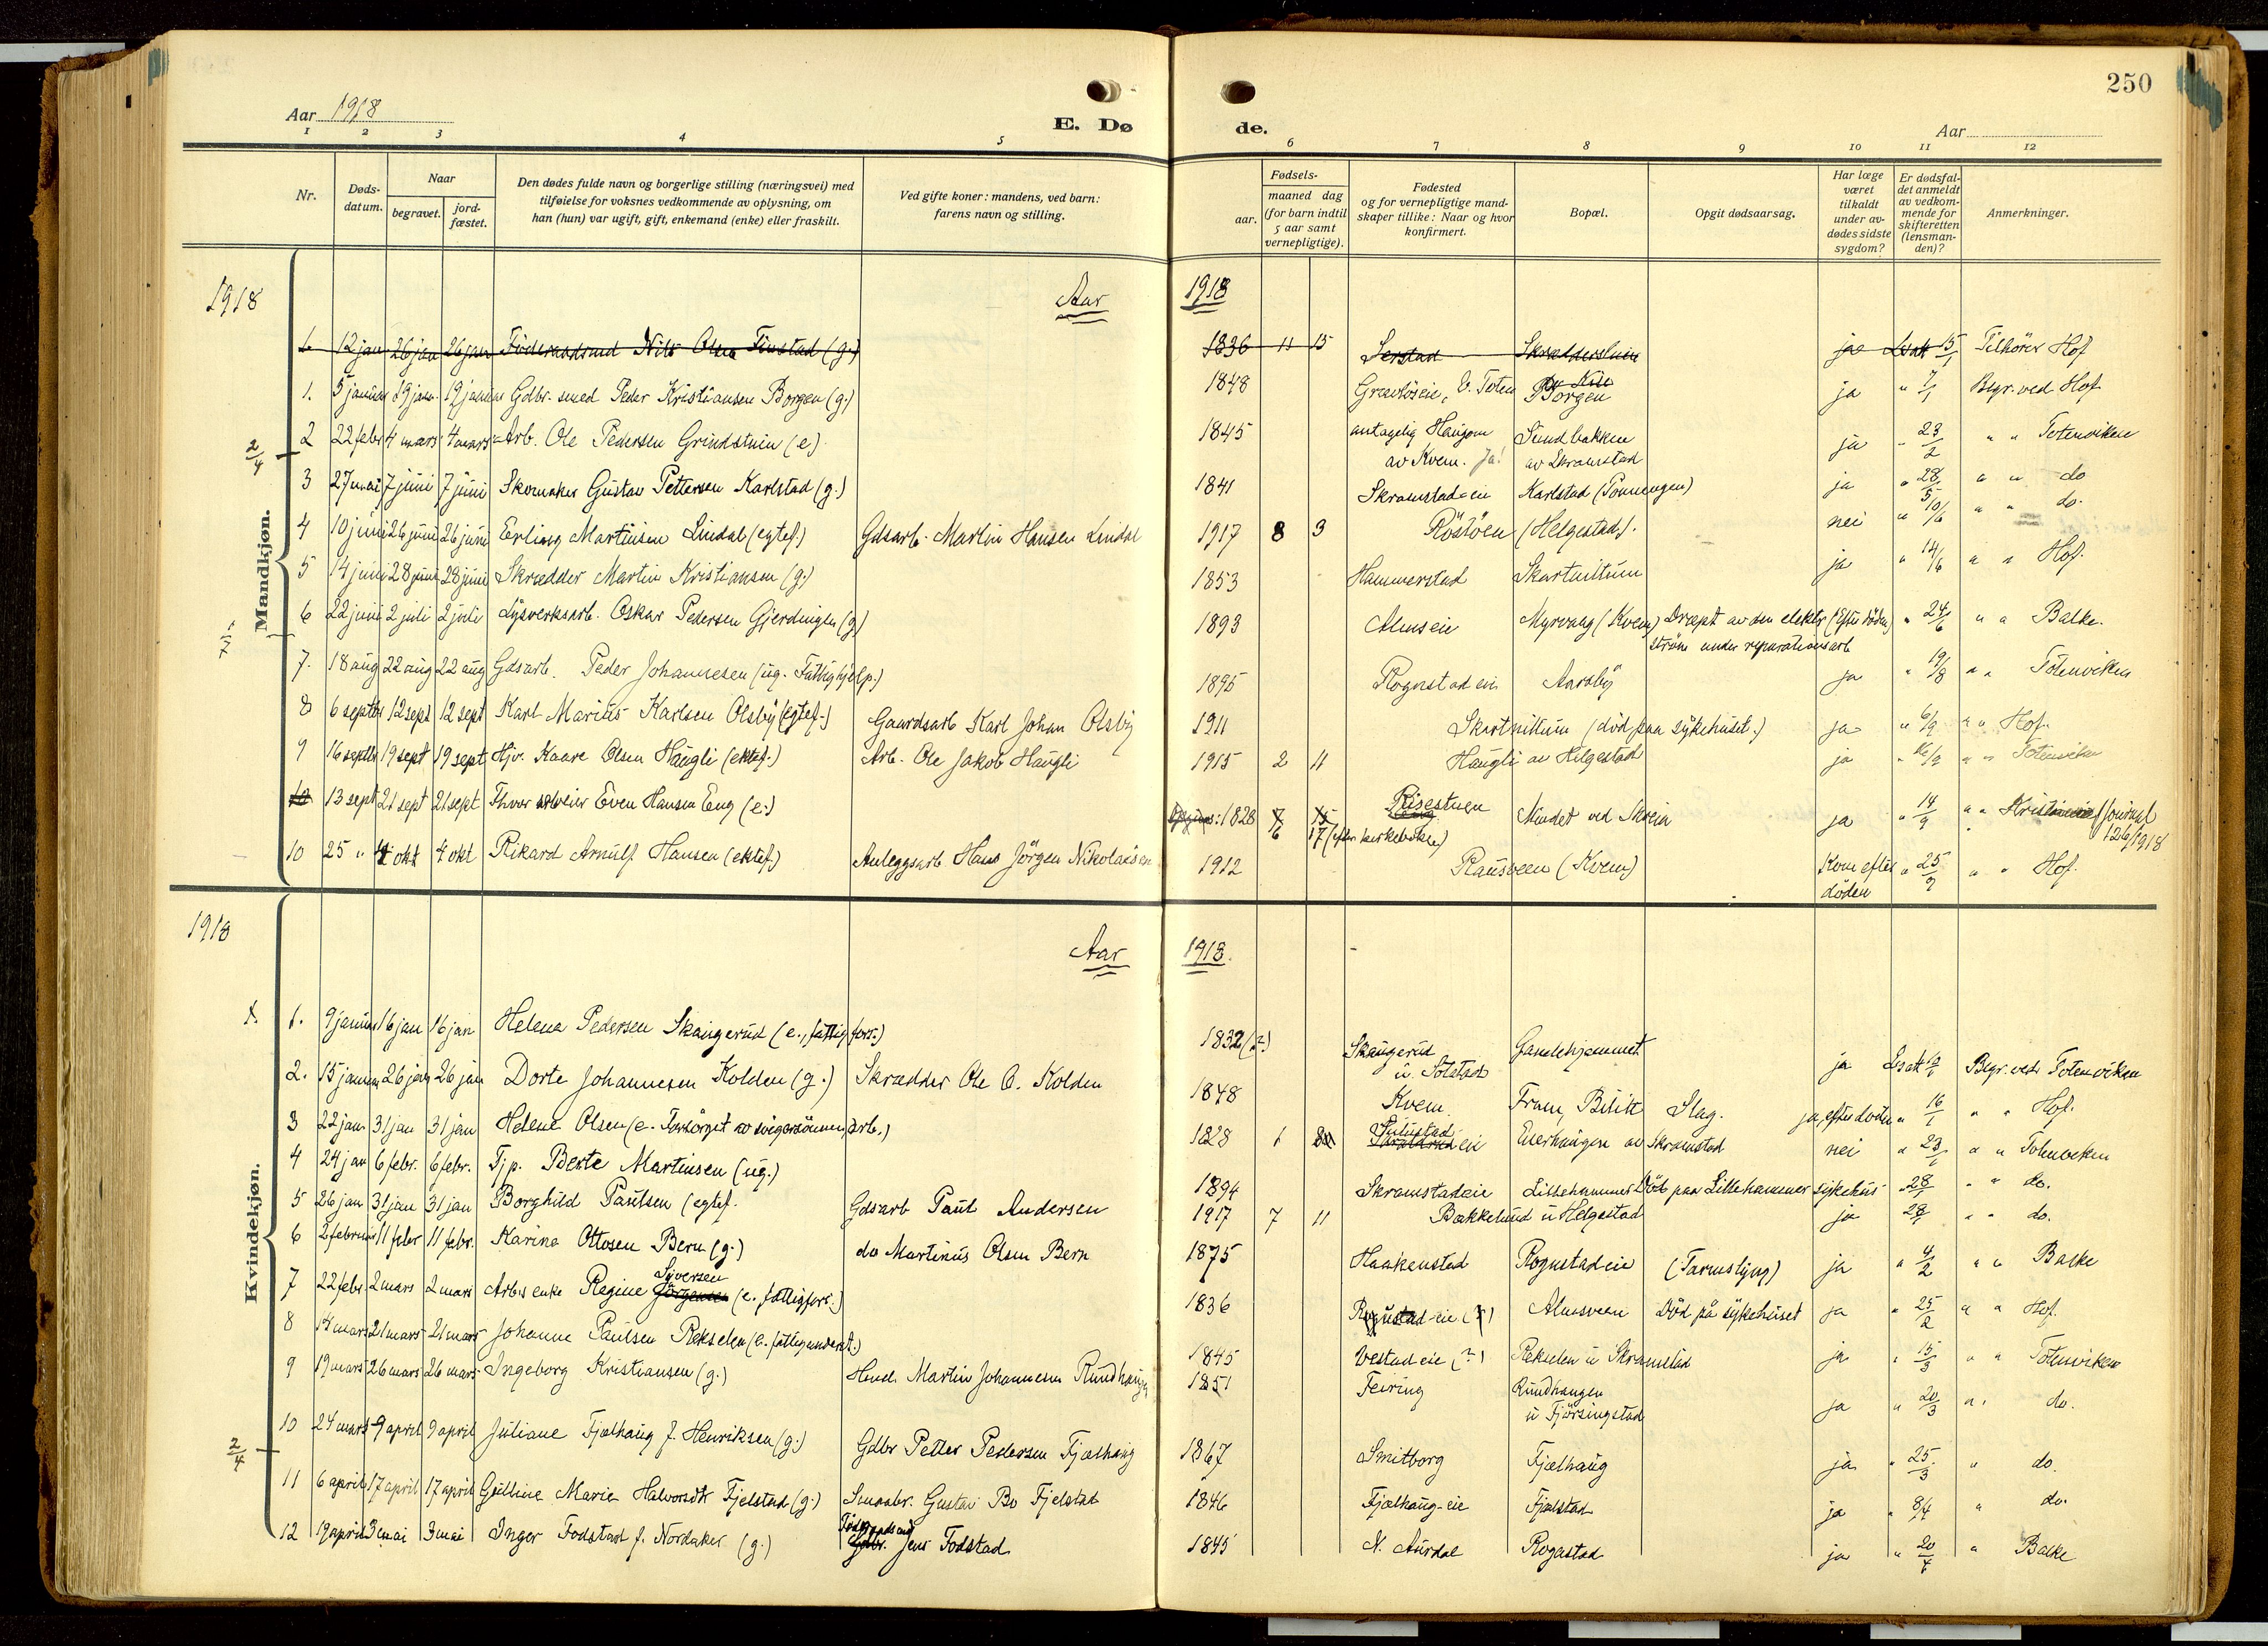 250
Aar 1918
E. Dø de.
Aar
1 2 3 4 5 6 7 8 9 10 11 12
Nr.
Døds-
datum.
Naar
begravet.
jord-
fæstet.
Den dødes fulde navn og borgerlige stilling (næringsvei) med
tilføielse for voksnes vedkommende av oplysning, om
han (hun) var ugift, gift, enkemand (enke) eller fraskilt.
Ved gifte koner: mandens, ved barn:
farens navn og stilling.
Fødsels-
aar.
maaned dag
(for barn indtil
5 aar samt
vernepligtige).
Fødested
og for vernepligtige mand-
skaper tillike: Naar og hvor
konfirmert.
Bopæl.
Opgit dødsaarsag.
Har læge
været
tilkaldt
under av-
dødes sidste
sygdom?
Er dødsfal-
det anmeldt
av vedkom-
mende for
skifteretten
(lensman-
den)?
Anmerkninger.
1918 Aar 1918
Mandkjøn.
1. 12 jan 26 jan 26 jan Føderaadsmd Nils Olsen (g.) 1836 11 15 ja Lsatt 15/1 Tilhörer Hof
1. 5 januar 19 jan. 19 januar Gdbr. smed Peder Kristiansen Borgen (g.) 1848 Ø. Toten Borgen ja " 7/1 Begr. ved Hof
2/4
2 22 febr 4 mars 4 mars Arb. Ole Pedersen Grindstuin (e) 1845 antagelig Haugom Sundbakken ja " 23/2 " " Totenviken
av Kvem. Ja! av Skramstad
3 27 mai 7 juni 7 juni Skomaker Gustav Pettersen Karlstad (g.) 1841 Skramstad-eie Karlstad ja " 28/5 " " do
4 10 juni 26 juni 26 juni Erling Martinsen Lindal (egtef.) Gdsarb. Martin Hansen Lindal 1917 8 3 Röstöen (Helgestad). nei " 10/6 " " do.
5 14 juni 28 juni 28 juni Skrædder Martin Kristiansen (g.) 1853 Hammerstad Skartnittum ja " 14/6 " " Hof.
6 22 juni 2 juli 2 juli Lysverksarb. Oskar Pedersen Gjerdingen (g) 1893 Almseie Myrvaag (Kvem) Dræpt av den elektr. (Efter döden) " 24/6 " " Balke.
ström under reparationsarb
1/7
7. 18 aug 22 aug 22 aug Gdsarb. Peder Johannesen (ug. Fattighjelp.) 1895 Rognstad eie Aarsby ja " 19/8 " " Totenviken
8 6 septbr 12 sept 12 sept Karl Marius Karlsen Olsby (egtef.) Gaardsarb Karl Johan Olsby 1911 Skartnittum (död paa sykehuset.) ja " 6/9 " " Hof.
9 16 septbr 19 sept 19 sept Hjv. Kaare Olsen Haugli (ektef.) Arb. Ole Jakob Haugli 1915 2 11 Haugli av Helgestad ja " 16/9 " " Totenviken
10 13 sept 21 sept 21 sept Even Hansen Eng (e.) 1828 6 17 (efter kirkeboken) Risestuen Mindet ved Skreia ja " 14/9 " " Kristiania (Journal
126/1918
10 25 " 4 okt 4 okt Rikard Arnulf Hansen (ektef.) Anleggsarb Hans Jörgen Nikolaisen 1912 Rausveen (Kvem) Kom efter " 25/9 " " Hof.
döden
1918 Aar 1918.
Kvindekjøn.
1. 9 januar 16 jan 16 jan Helene Pedersen Skaugerud (e., fattigfors.) 1832 (?) Skaugerud Gamlehjemmet ja Lsatt Begr. ved Totenviken
u. Sölstad
2. 15 januar 26 jan 26 jan Dorte Johannesen Kolden (g.) Skrædder Ole O. Kolden 1848 Kvem. Fram, Bilitt Slag. ja, efter döden " 16/1 " " Hof.
3 22 jan 31 jan 31 jan Helene Olsen (e. Forsörget av svigersönnen, arb.) 1828 1 eie Enerhaugen av Skramstad nei " 23/1 " " Totenviken
4 24 jan 6 febr. 6 febr. Tjp. Berte Martinsen (ug.) 1894 Skramstadeie Lillehammer Död paa Lillehammer sykehus 28/1 " " do.
5 26 jan 31 jan 31 jan Borghild Paulsen (egtef. Gdsarb Paul Andersen 1917 7 11 Bakkelund u Helgestad ja 28/1 " " do.
6 2 februar 11 febr 11 febr. Karine Ottosen Bern (g.) do Martinus Olsen Bern 1875 Haakenstad Rognstad eie ja " 4/2 " " Balke
7 22 febr. 2 mars 2 mars Arb.s enke Regine Syversen Jörgensen (e. fattigfors.) 1836 Rognstad-eie (?) Almsveen Död på sykehuset ja " 25/2 " " Hof.
8 14 mars 21 mars 21 mars Johanne Paulsen Rekselen (e. fattigunderst.) 1845 Vestad eie (?) Rekselen u Skramstad ja " 15/3 " " Totenviken
9 19 mars 26 mars 26 mars Ingeborg Kristiansen (g.) Hmd. Martin Johannesen Rundhaugen 1851 Feiring Rundhaugen ja " 20/3 " " do.
u Fjörsingstad
10 24 mars 9 april 9 april Juliane Fjælhaug f. Henriksen (g.) Gdbr Petter Pedersen Fjælhaug 1867 Smitborg Fjælhaug ja " 25/3 " do.
2/4
11 6 april 17 april 17 april Gulline Marie Halvorsdtr Fjelstad (g.) Smaabr. Gustav Bo Fjelstad 1846 Fjælhaug-eie Fjælstad ja " 8/4 " do.
12 19 april 3 mai 3 mai Inger Fodstad f. Nordaker (g.) Föderaadsmd Gdbr. Jens Fodstad 1845 N. Aurdal Rogastad ja " 20/4 " Balke